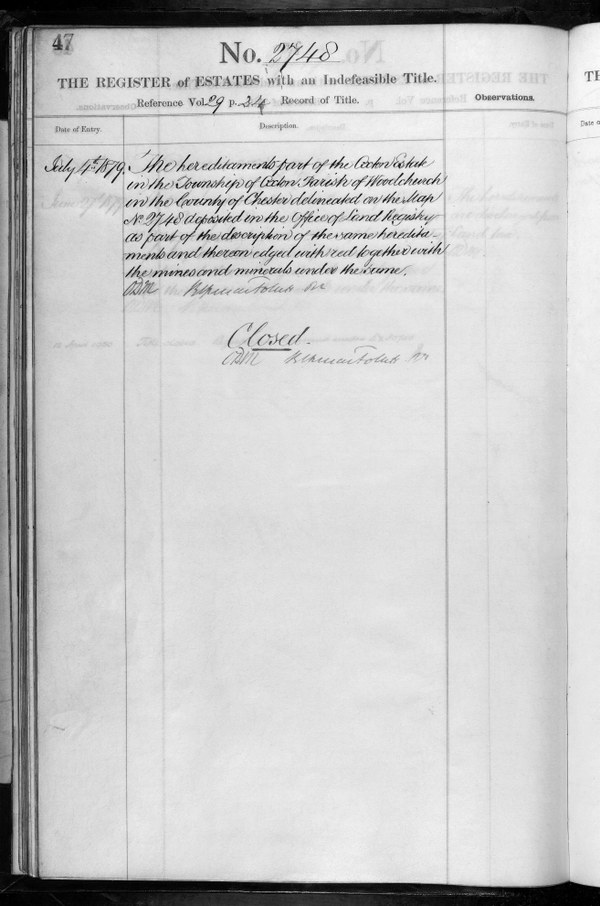 47
No. 2748
THE REGISTER of ESTATES with an Indefeasible Title.
Reference Vol. 29 p. Record of Title.
Observations.
Date of Entry.
Description.
July 4th 1879.
The hereditaments part of the Oxton Estate
in the Township of Oxton Parish of Woodchurch
in the County of Chester delineated on the Map
No 2748 deposited in the Office of Land Registry
as part of the description of the same heredita
ments and thereon edged with red together with
the mines and minerals under the same.
Closed.
TH
Date o